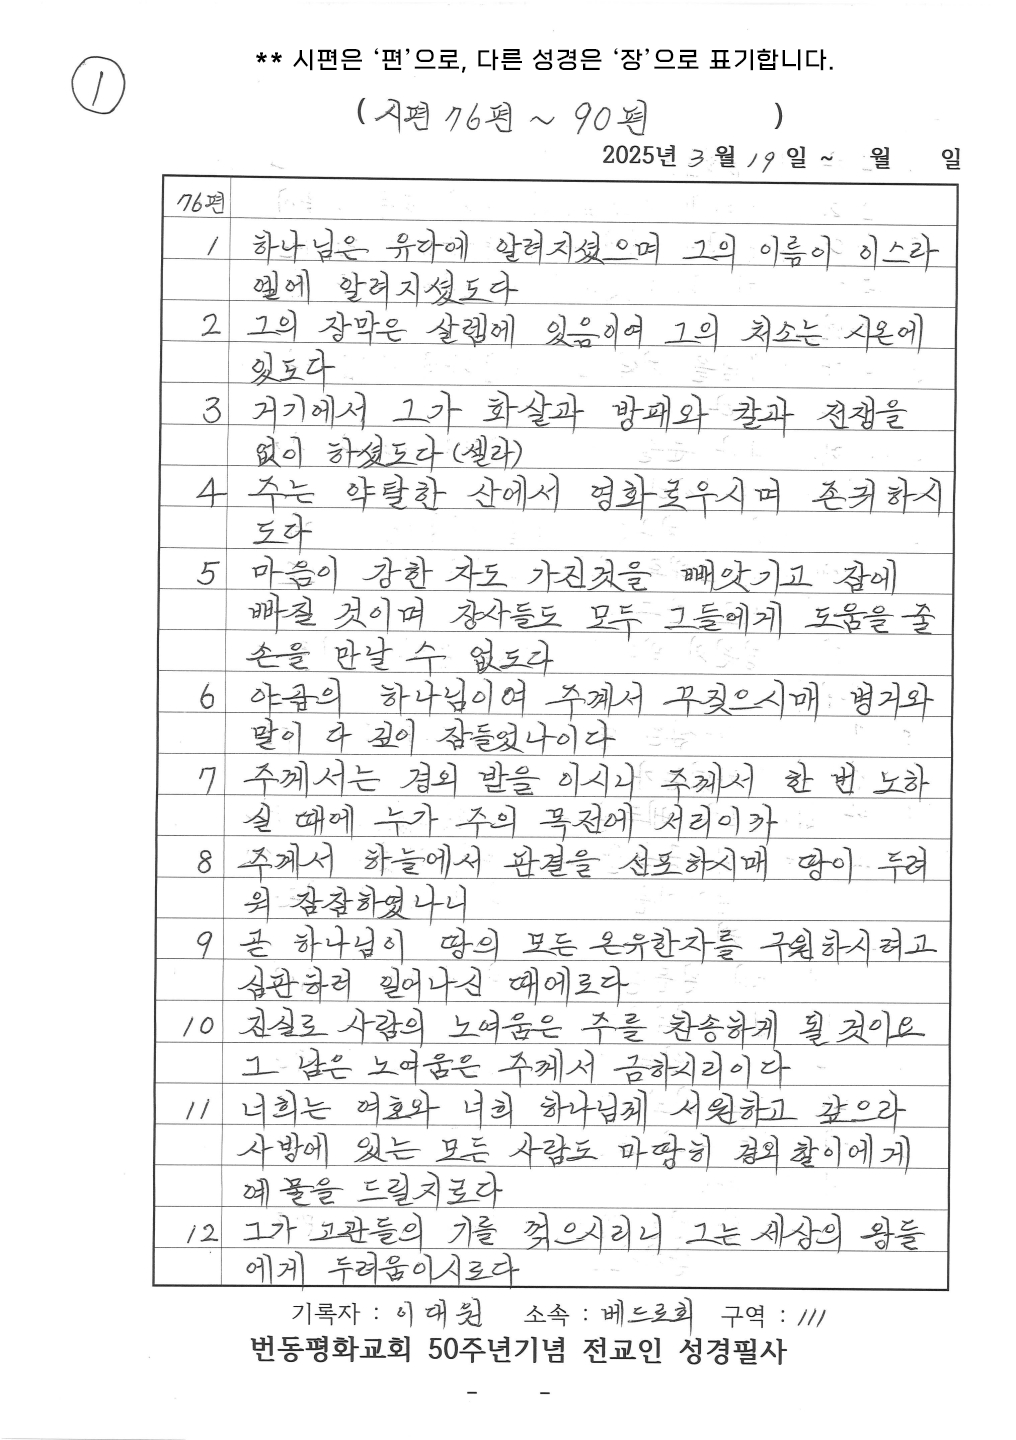 ** 시편은 ‘편’으로, 다른 성경은 ‘장’으로 표기합니다.
1
( 시편 76편 ~ 90편 )
2025년 3월 19일 ~ 월 일
76편
1 하나님은 유다에 알려지셨으며 그의 이름이 이스라
엘에 알려지셨도다
2 그의 장막은 살렘에 있음이여 그의 처소는 시온에
있도다
3 거기에서 그가 화살과 방패와 칼과 전쟁을
없이 하셨도다 (셀라)
4 주는 약탈한 산에서 영화로우시며 존귀하시
도다
5 마음이 강한 자도 가진것을 빼앗기고 잠에
빠질 것이며 장사들도 모두 그들에게 도움을 줄
손을 만날 수 없도다
6 야곱의 하나님이여 주께서 꾸짖으시매 병거와
말이 다 깊이 잠들었나이다
7 주께서는 경외 받을 이시니 주께서 한 번 노하
실 때에 누가 주의 목전에 서리이까
8 주께서 하늘에서 판결을 선포하시매 땅이 두려
워 잠잠하였나니
9 곧 하나님이 땅의 모든 온유한자를 구원하시려고
심판하러 일어나신 때에로다
10 진실로 사람의 노여움은 주를 찬송하게 될 것이요
그 남은 노여움은 주께서 금하시리이다
11 너희는 여호와 너희 하나님께 서원하고 갚으라
사방에 있는 모든 사람도 마땅히 경외할이에게
예물을 드릴지로다
12 그가 고관들의 기를 꺾으시리니 그는 세상의 왕들
에게 두려움이시로다
기록자 : 이대원 소속 : 베드로회 구역 : 111
번동평화교회 50주년기념 전교인 성경필사
- -